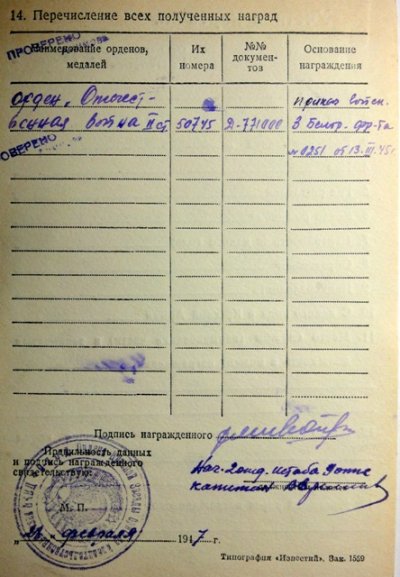 14. Перечисление всех полученных наград
ПРОВЕРЕНО
Наименование орденов, медалей
Их номера
№№ документов
Основание награждения
Орден „Отечест-
венная война II ст
50745
Д-771000
Приказ войск.
3 Белор. фр-та
№ 0251 от 13.III.45 г
ПРОВЕРЕНО
Подпись награжденного
Правильность данных
и подпись награжденного
свидетельствую:
Нач.
капитан
М. П.
„26“ февраля 1947 г.
Типография «Известий». Зак. 1569